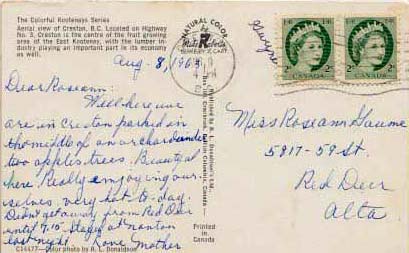 The Colorful Kootenays Series
Aerial view of Creston, B.C. Located on Highway
No. 3, Creston is the centre of the fruit growing
area of the East Kootenay, with the lumber in-
dustry playing an important part in its economy
as well.
Aug. 8, 196
Dear Roseann:
Well here we
are in Creston parked in
the middle of an orchard under
two apples trees. Beautiful
here. Really enjoying our-
selves. very hot to-day.
Didn't get away from Red Deer
until 7.15 Stayed at nanton
last night. Love Mother
C14477—Color photo by R. L. Donaldson
NATURAL COLOR
4 PM
Printed in
Canada
CANADA
CANADA
Miss Roseann Gaume
5917-59 St.
Red Deer
Alta